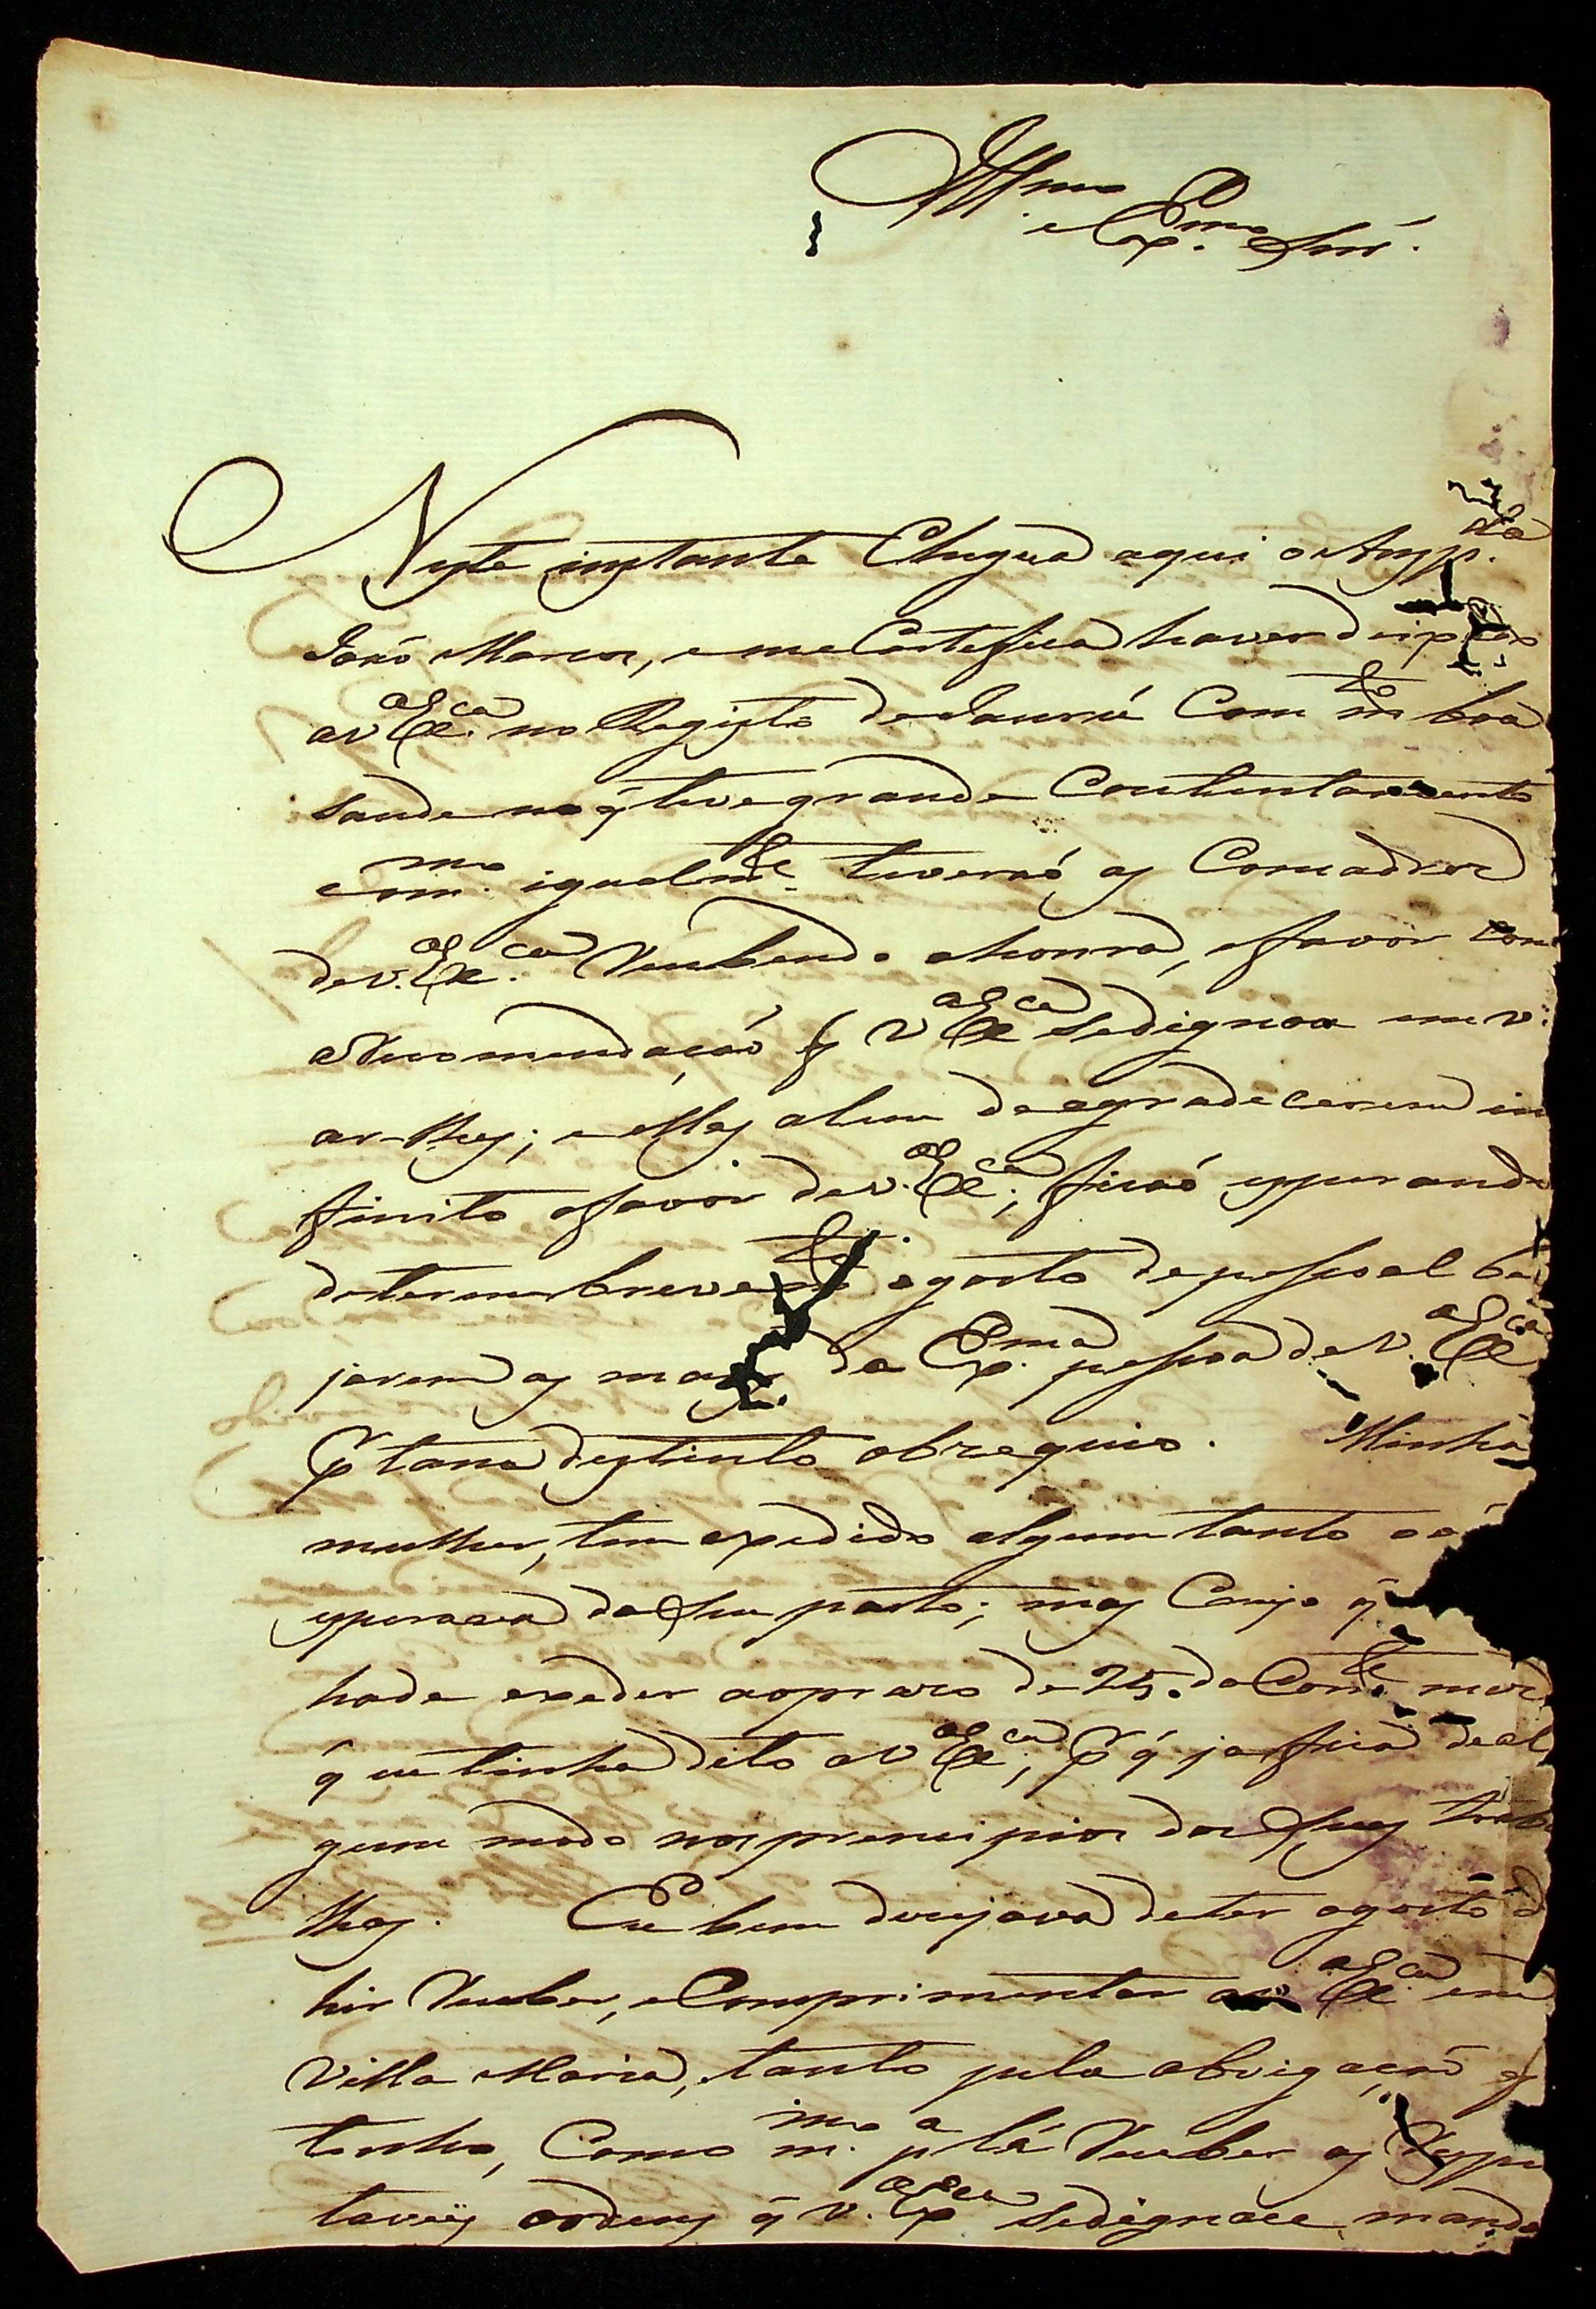 Illmo
e Exmo Snr.
Neste instante Chega aqui o Ansp.da
João Marcos, eme Certefica haver deixado
aV. Exca. no Registo deJaurú Com mto boa
saude no q̃ tive grande Contentamento
e Com mo igualmte. tiverão as Comadres
deV. Exca. recebendo ahonra, efavor Com
aRecomendação q̃ V Exca sedignou envi
ar-lhes; eellas alem deagradecerem in
finito ofavor deV. Exca; ficão esperando
deterem breve mte ogosto depessoal bei
jarem as mãos da Exma. pessoa deV. Exca
pr tam destinto obzequio. Minha
mulher, tem expedido algum tanto aá
esperaza doSeu parto; mas Creyo q̃
hade exeder aoprazo de25. doCorrte mez
q̃ eu tinha dito aV Exca; pr q̃ ja fica deal
gum modo nosprencipios dos Seus traba
lhos. Eu bem dezejava deter ogosto d
hir receber, eComprimentar aV Exca. em
Villa Maria, tanto pela obrigação q̃
tenho, Como mmo. pa lá receber as Respei
taveis ordens q̃ V. Exca sedignace manda